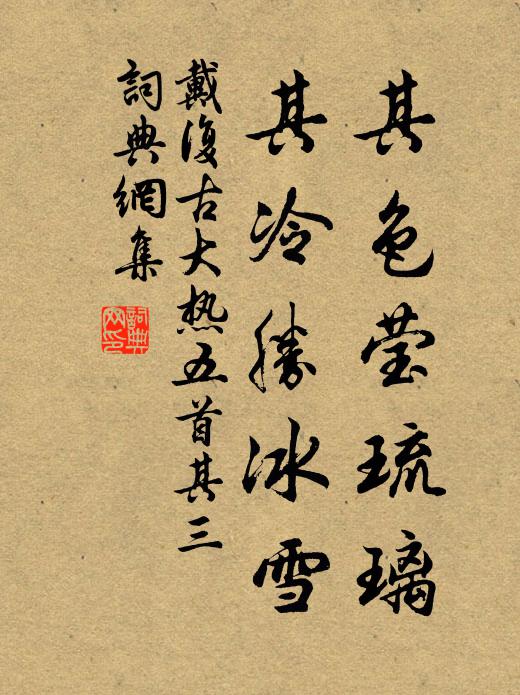 其色莹琉璃
其冷勝冰雪
戴復古大热五首其三
詞典網集
詞典网印